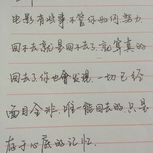 电影有些事不管你如何努力
回不去就是回不去了就算真的
回去了你也会发现一切已经
面目全非唯一能回去的只是
存于心底的记忆